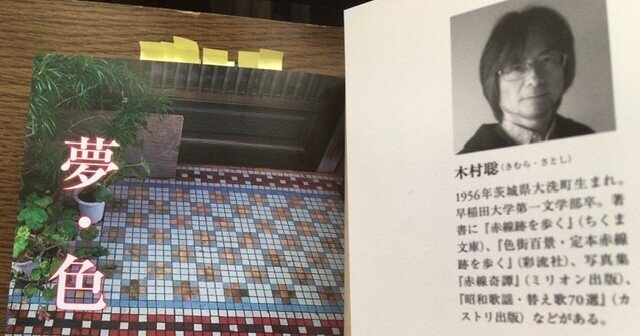 夢・色
木村聡（きむら・さとし）
1956年茨城県大洗町生まれ。
早稲田大学第一文学部卒。著
書に『赤線跡を歩く』（ちくま
文庫）、『色街百景・定本赤線
跡を歩く』（彩流社）、写真集
『赤線奇譚』（ミリオン出版）、
『昭和歌謡・替え歌70選』（カ
ストリ出版）などがある。